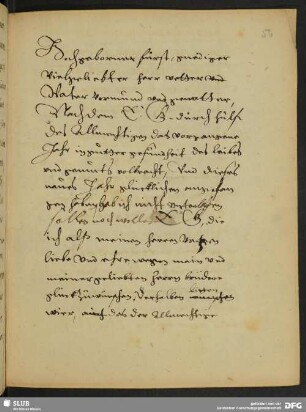 Hochgeborner fürst, gnediger
vielgeliebter herr vetter und
Vater vormund und gevatter,
Nach dem E. G. durch hülf
des Allmechtigen das vorgangene
Jahr in gutter gesundheit des leibes
und gemüts volbracht, Und dieses
neues Jahr glücklichen angefan
gen haben hab ich nicht
sollen noch wollen E G, die
ich alß meinen herren Vattern
liebe und ehre wegen mein und
meiner geliebten herrn brüdere
glück zu wünschen, derhalben bitten
wier, das der Allmechtige